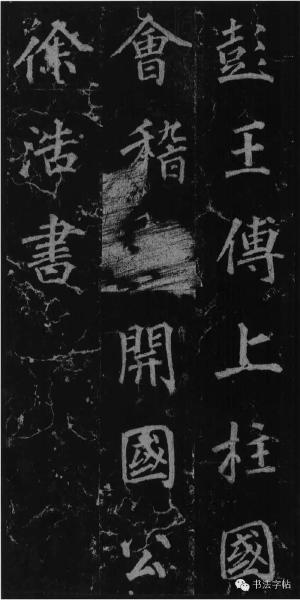 彭王傅上柱國
會稽開國公
徐浩書
書法字帖